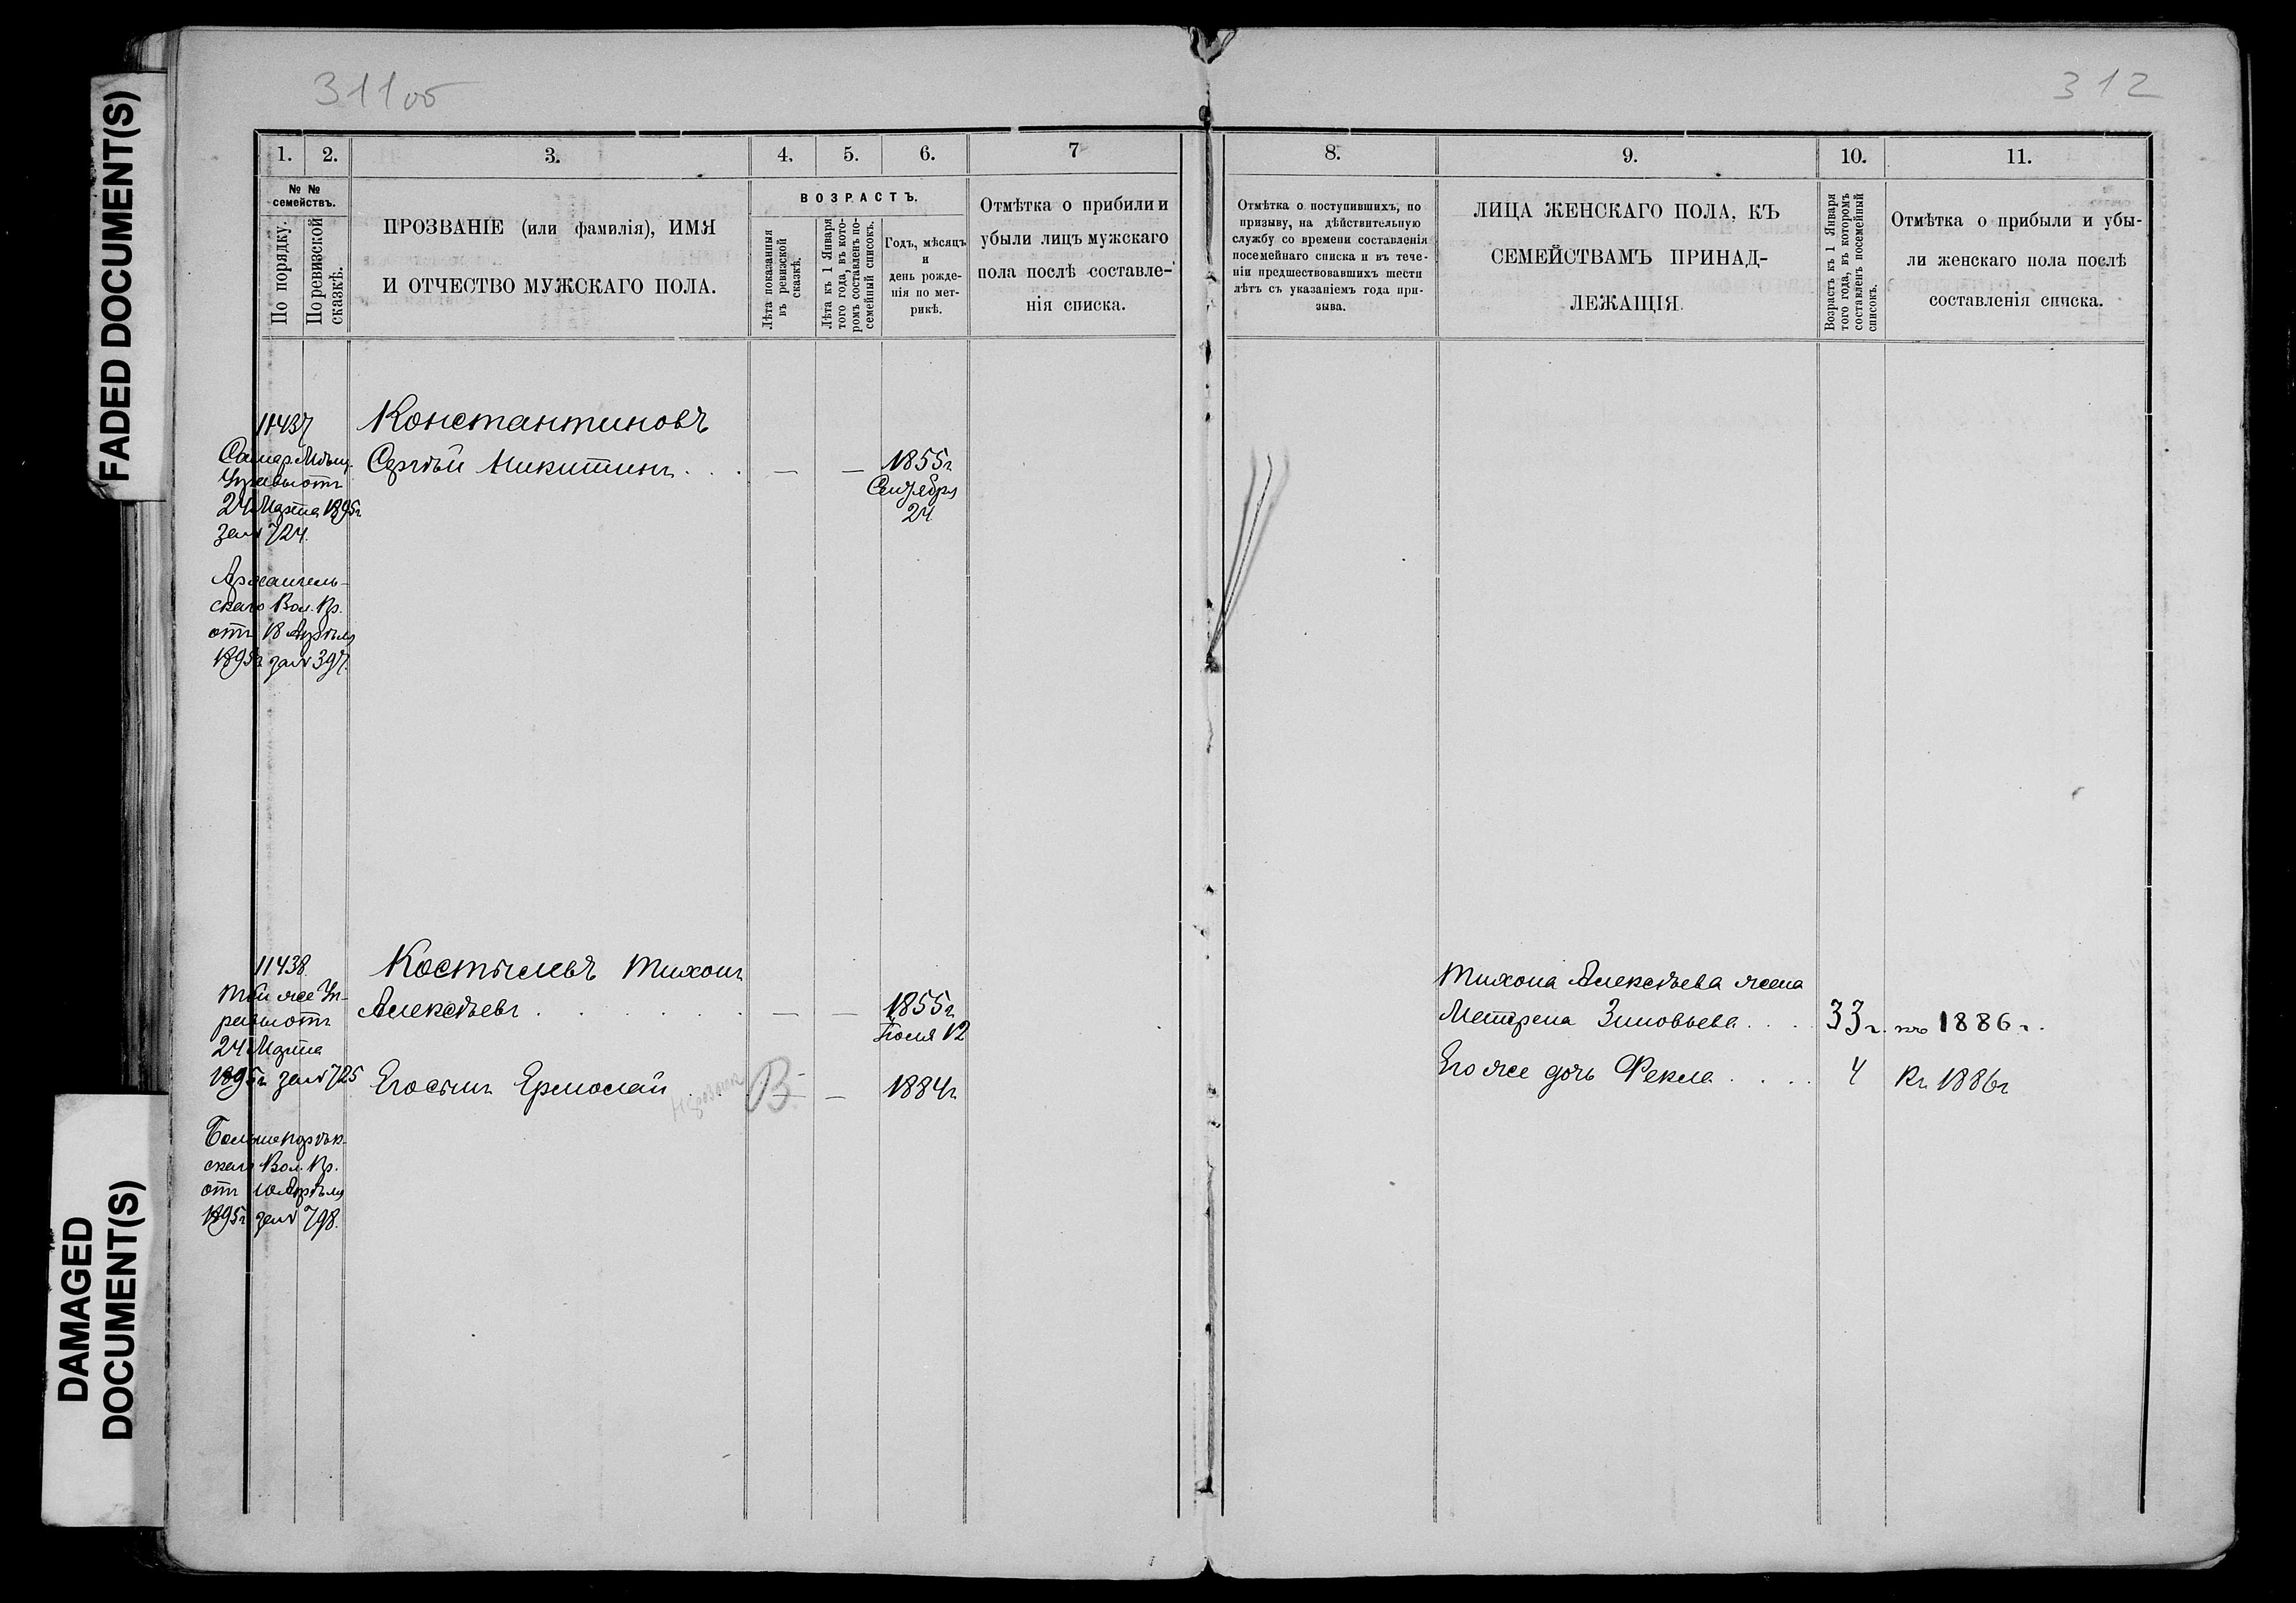 FADED DOCUMENT(S)
DAMAGED
DOCUMENT(S)
311 об
312
1.
2.
3.
4.
5.
6.
7
№ №
семействъ.
По порядку.
По ревизской
сказкѣ.
ПРОЗВАНІЕ (или фамилія), ИМЯ
И ОТЧЕСТВО МУЖСКАГО ПОЛА.
ВОЗРАСТЪ.
Лѣта показанныя
въ ревизской
сказкѣ.
Лѣта къ 1 Января
того года, въ кото-
ромъ составленъ по-
семейный списокъ.
Годъ, мѣсяцъ
и
день рожде-
нія по мет-
рикѣ.
Отмѣтка о прибыли и
убыли лицъ мужскаго
пола послѣ составле-
нія списка.
11437
Самар. Мѣщ.
Управы отъ
24 Марта 1895г
за № 724.
Архангель-
скаго Вол. Пр.
отъ 18 Апрѣля
1895г за № 397.
Константиновъ
Сергѣй Никитинъ . . . — —
1855г
Сентября
24
11438
Той же Уп-
равы отъ
24 Марта
1895г за № 725
скаго Вол. Пр.
отъ 10 Апрѣля
1895г за № 798.
Костылевъ Тихонъ
Алексѣевъ . . . . . . — —
1855г
Іюля 12
Его сынъ Ермолай . . В — —
1884г
8.
9.
10.
11.
Отмѣтка о поступившихъ, по
призыву, на дѣйствительную
службу со времени составленія
посемейнаго списка и въ тече-
ніи предшествовавшихъ шести
лѣтъ съ указаніемъ года при-
зыва.
ЛИЦА ЖЕНСКАГО ПОЛА, КЪ
СЕМЕЙСТВАМЪ ПРИНАД-
ЛЕЖАЩІЯ.
Возрастъ къ 1 Января
того года, въ которомъ
составленъ посемейный
списокъ.
Отмѣтка о прибыли и убы-
ли женскаго пола послѣ
составленія списка.
Тихона Алексѣева жена
Матрена Зиновьева . . . . 33 г. къ 1886 г.
Его же дочь Фекла . . . . 4 Къ 1886г